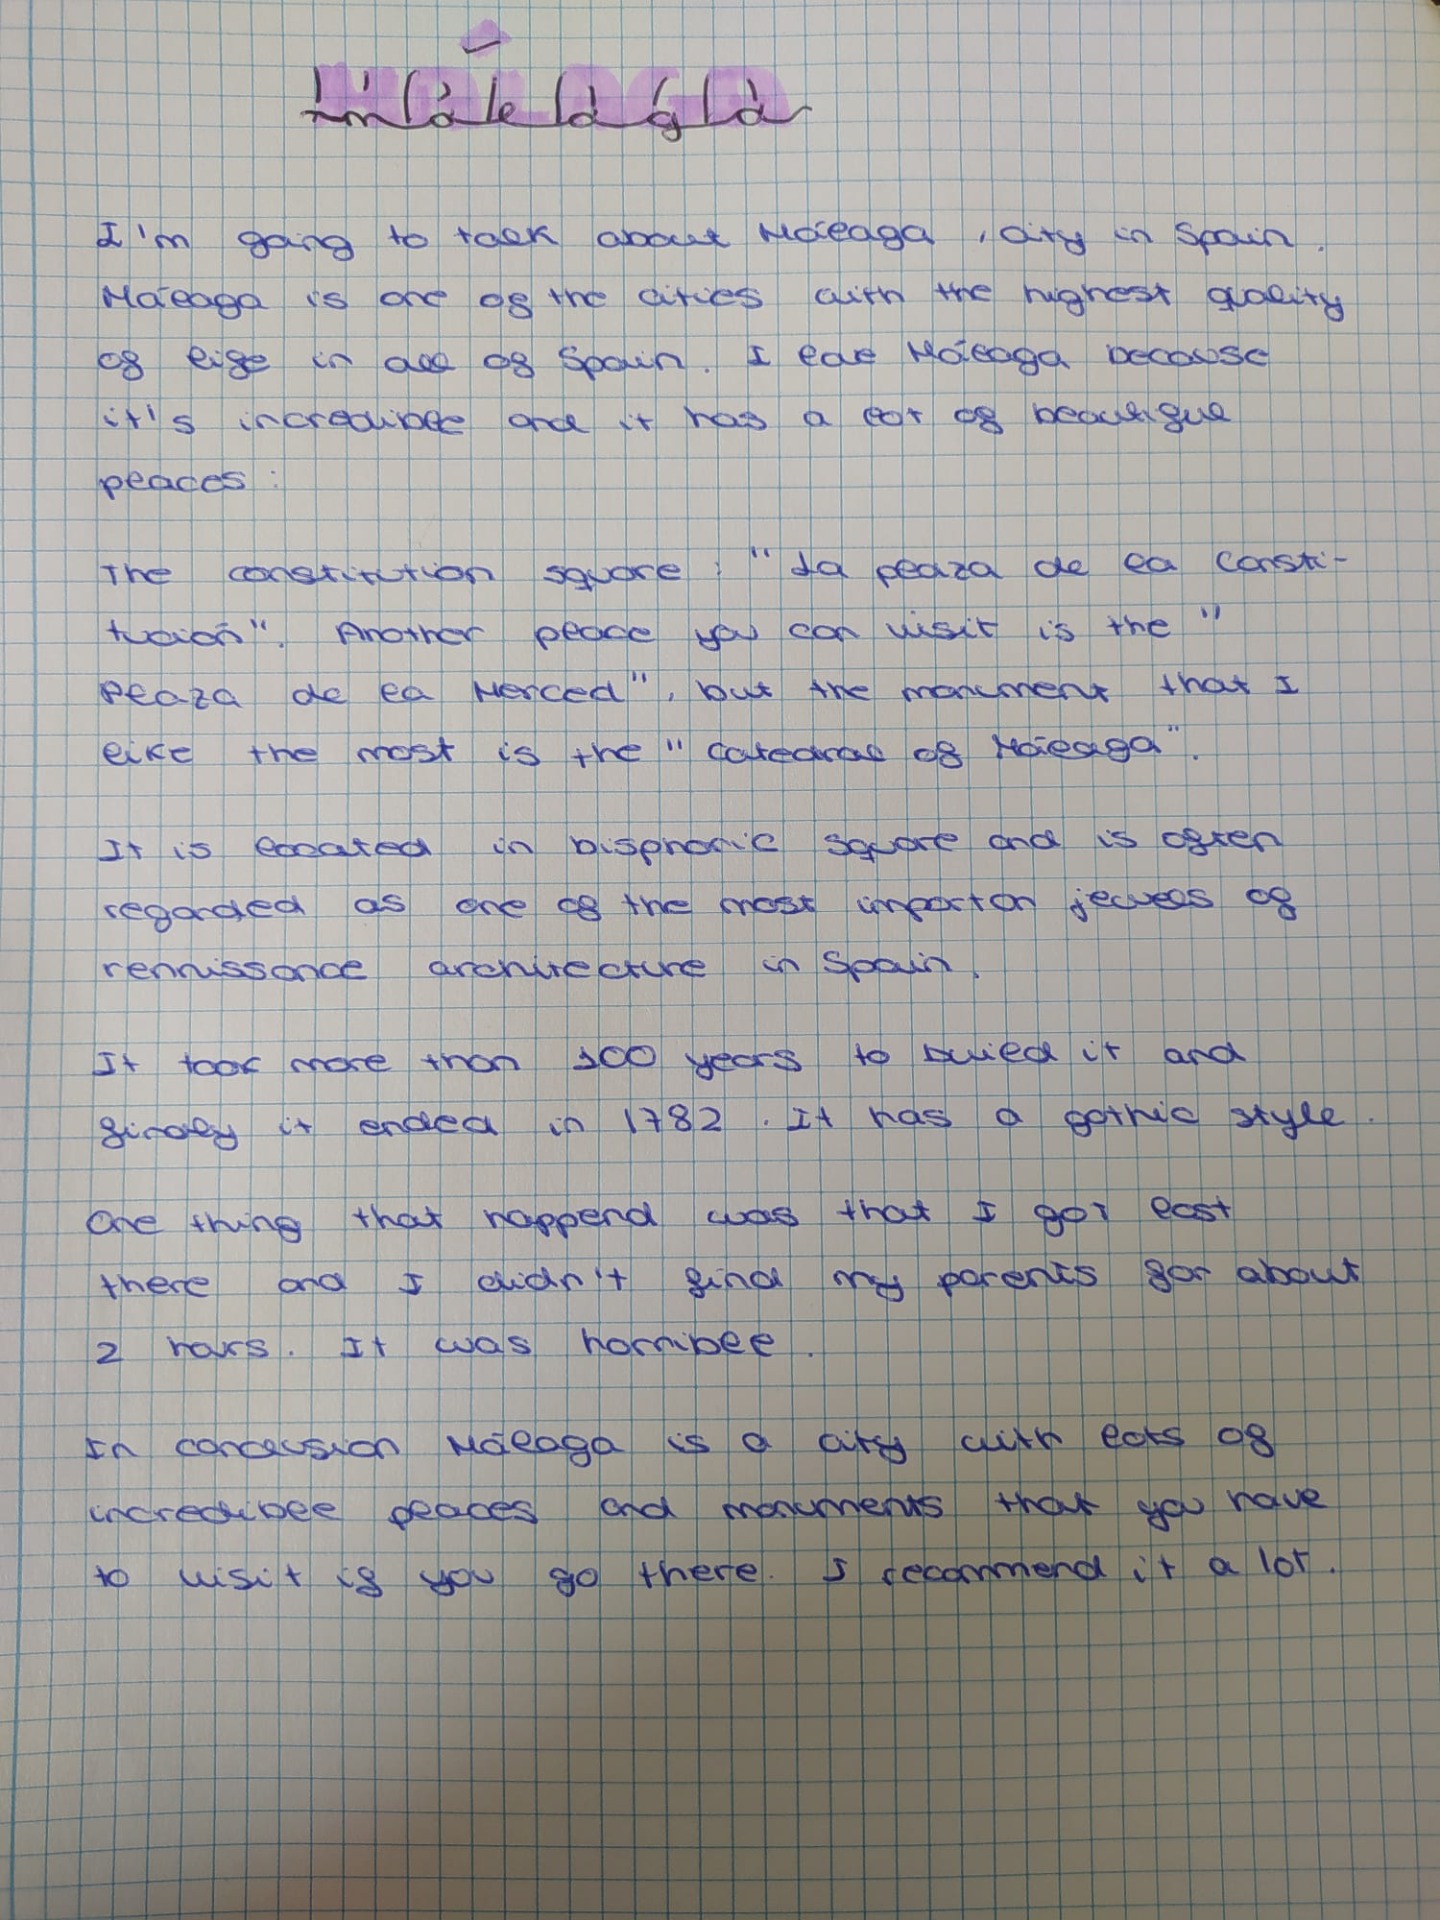 Málaga
I'm going to talk about Málaga, city in Spain.
Málaga is one of the cities with the highest quality
of life in all of Spain. I love Málaga because
it's incredible and it has a lot of beautiful
places:
The constitution square: "La plaza de la Consti-
tución". Another place you can visit is the "
Plaza de la Merced", but the monument that I
like the most is the "Catedral of Málaga".
It is located in bisphoric square and is often
regarded as one of the most importan jewels of
rennissance architecture in Spain.
It took more than 100 years to build it and
finaly it ended in 1782. It has a gothic style.
One thing that happend was that I got lost
there and I didn't find my parents for about
2 hours. It was horrible.
In conclusion Málaga is a city with lots of
incredible places and monuments that you have
to visit if you go there. I recommend it a lot.